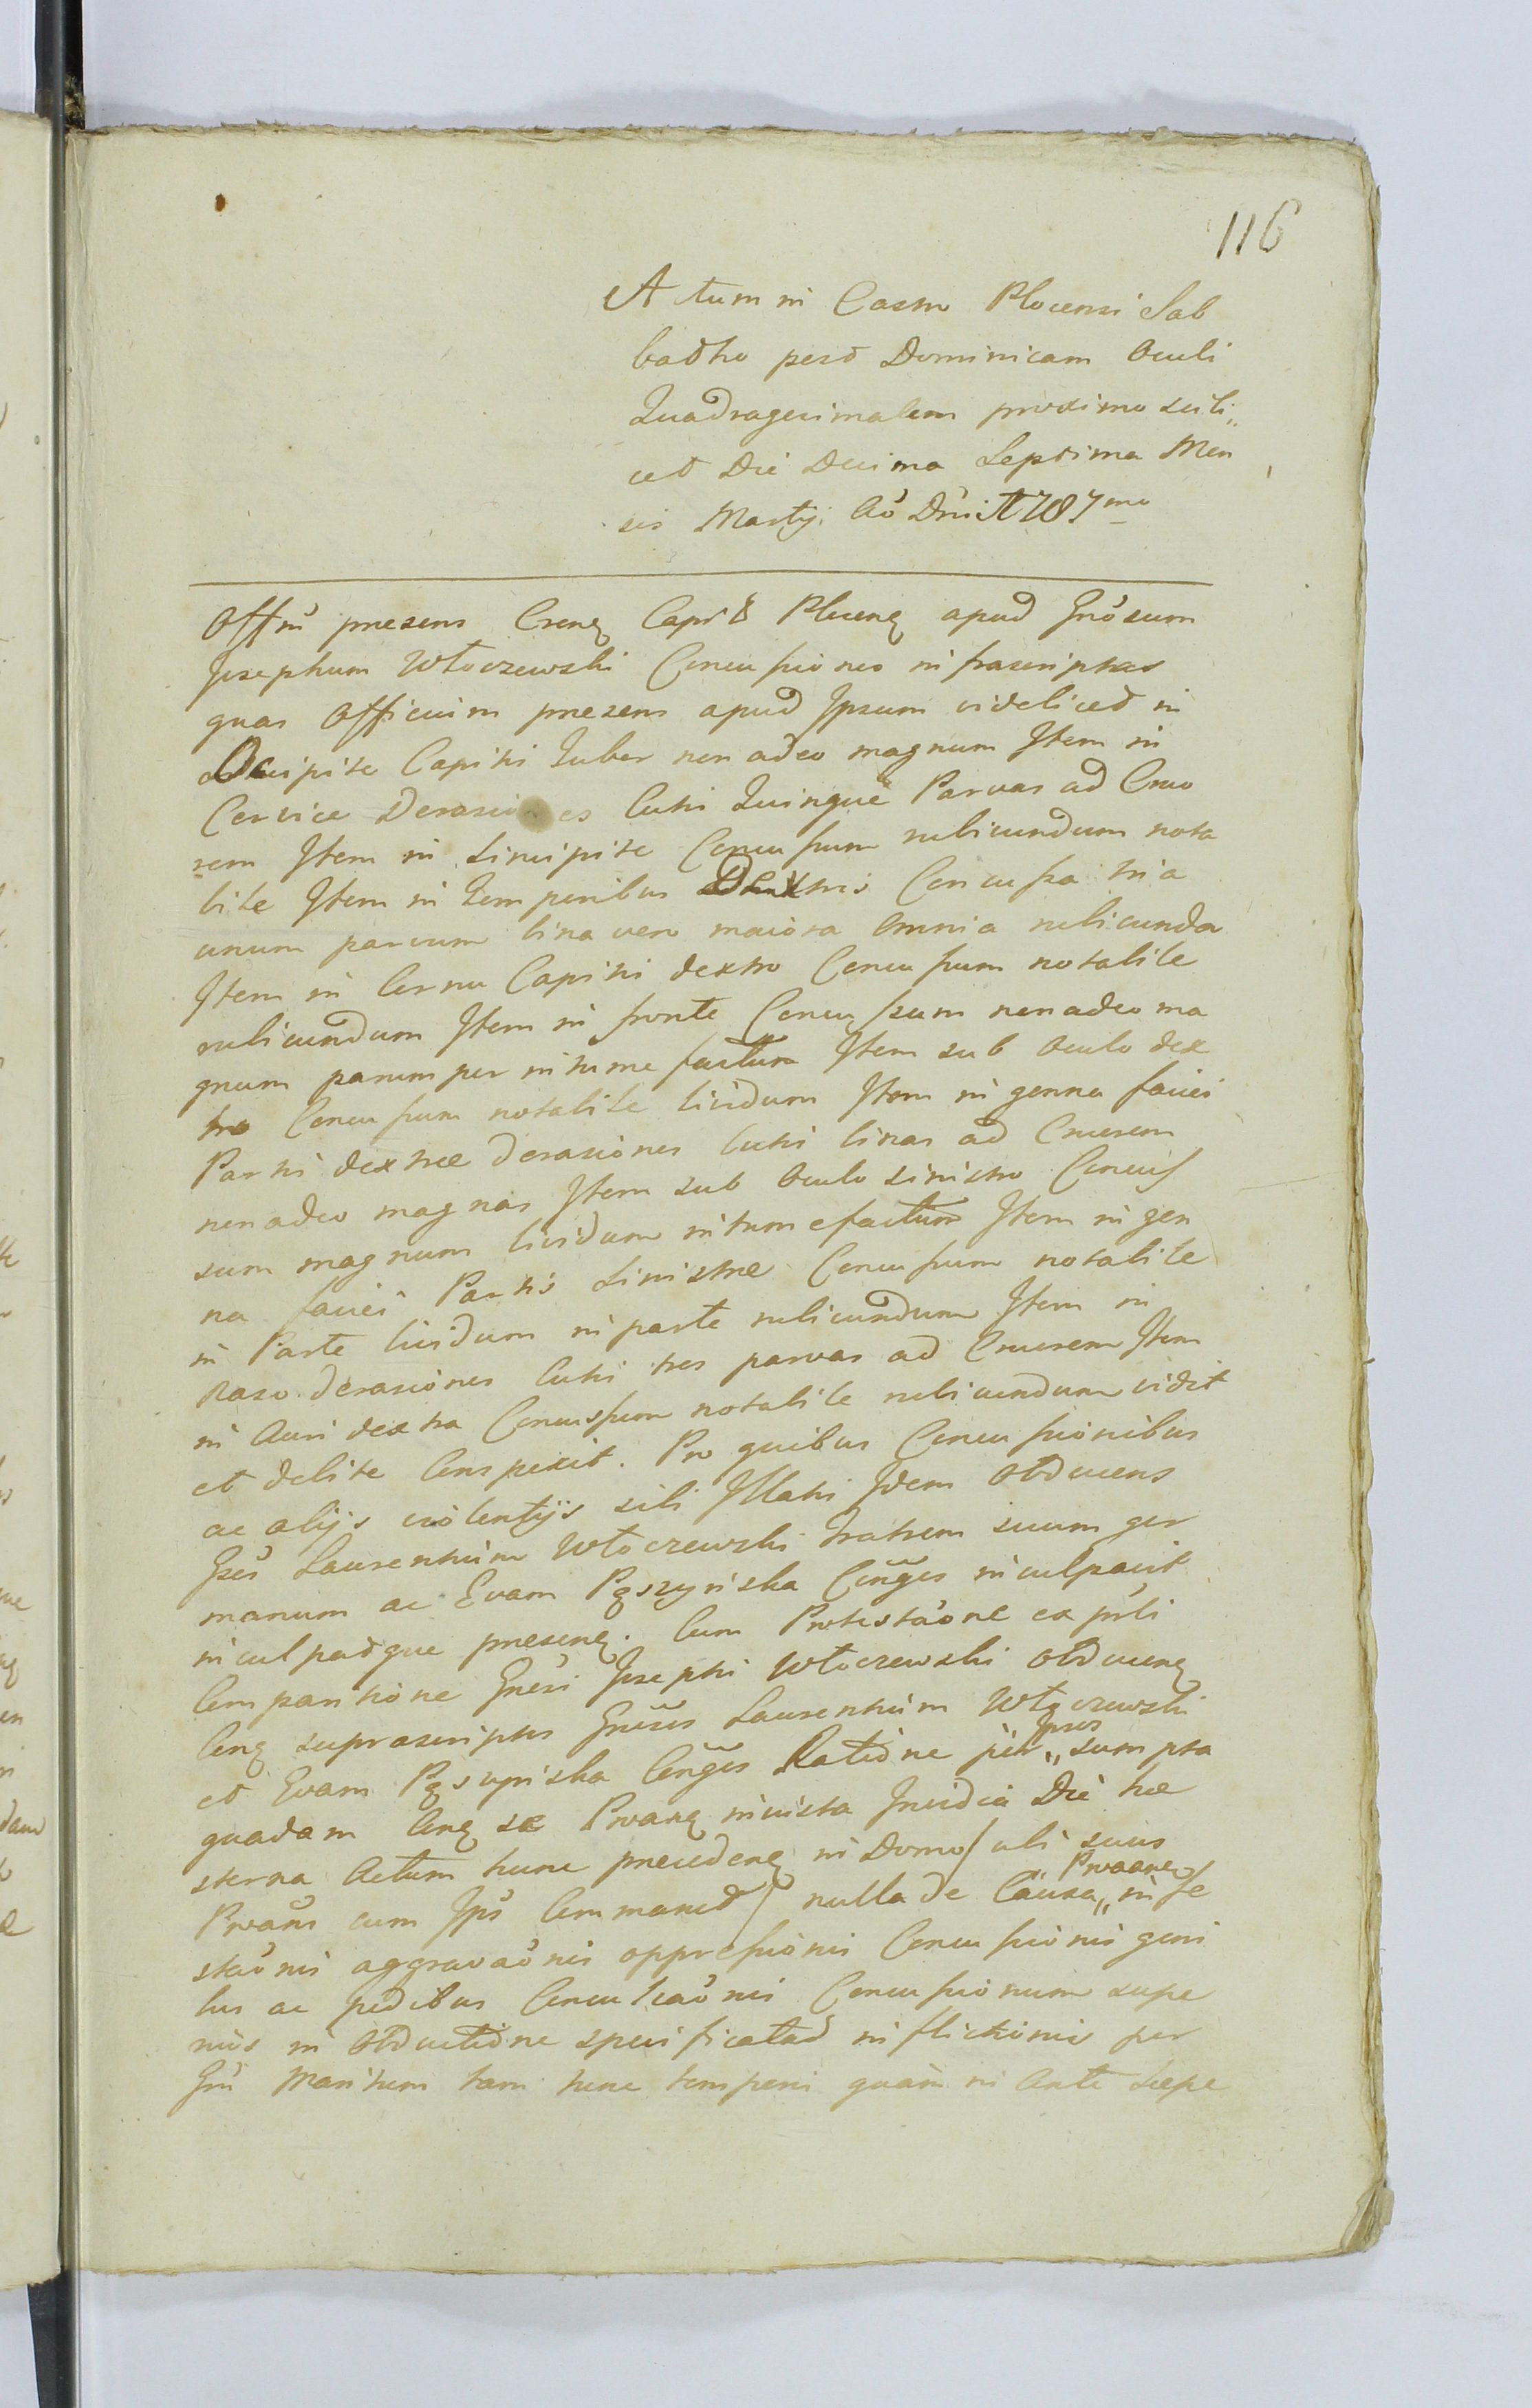 116
Actum in Castro Plocensi Sab
batho post Dominicam Oculi
Quadragesimalem proximo scili„
cet Die Decima Septima Men
sis Martij Aō Dni 1787mo
Offm presens Crenz Capt Plucenz apud Gnosum
Josephum Włoczewski Concussiones infrascriptas
quas Officium presens apud Ipsum videlicet in
Occipite Capitis Tuber non adeo magnum Item in
Cervice Derasiones Cutis Quinque Parvas ad Cruo
rem Item in Sincipite Concussum rubicundum nota
bile Item in Temporibus Dextris Concussa tria
unum parvum bina vero maiora Omnia rubicunda
Item in Cornu Capitis dextro Concussum notabile
rubicundum Item in fronte Concussum non adeo ma
gnum parumper intumefactum Item sub Oculo dex
tro Concussum notabile lividum Item in genna faciei
Partis dextræ derasiones Cutis binas ad Cruorem
non adeo magnas Item sub Oculo sinistro Concus
sum magnum lividum intumefactum Item in gen
na faciei Partis Sinistræ Concussum notabile
in Parte lividum in parte rubicundum Item in
Naso derasiones Cutis tres parvas ad Cruorem Item
in Auri dextra Concussum notabile rubicundum vidit
et debite Conspexit. Pro quibus Concussionibus
ac alijs violentijs sibi Illatis Idem Obducens
Gsos Laurentium Włoczewski Fratrem suum ger
manum ac Evam Pqszyńska Conges inculpavit
inculpatque presenz. Cum Protestaone ex psti
Comparitione Gnosi Josephi Włoczewski Obducenz
Conz suprascriptos Gnosos Laurentium Włoczewski
et Evam Pqszyńska Conges Ratione per „Ipsos sumpta
quadam Conz se Proanz iniusta Invidia Die he
sterna Actum hunc precedenz in Domo / ubi suus
Proans cum Ipso Commanet / nulla de Causa „Proanem infe
staonis aggravaonis oppressionis Concussionis geni
bus ac pedibus Conculcaonis Concussionum supe
rius in Obductione specificatas inflictionis per
Gm Maritum tam tunc temporis quàm in Ante Sæpe